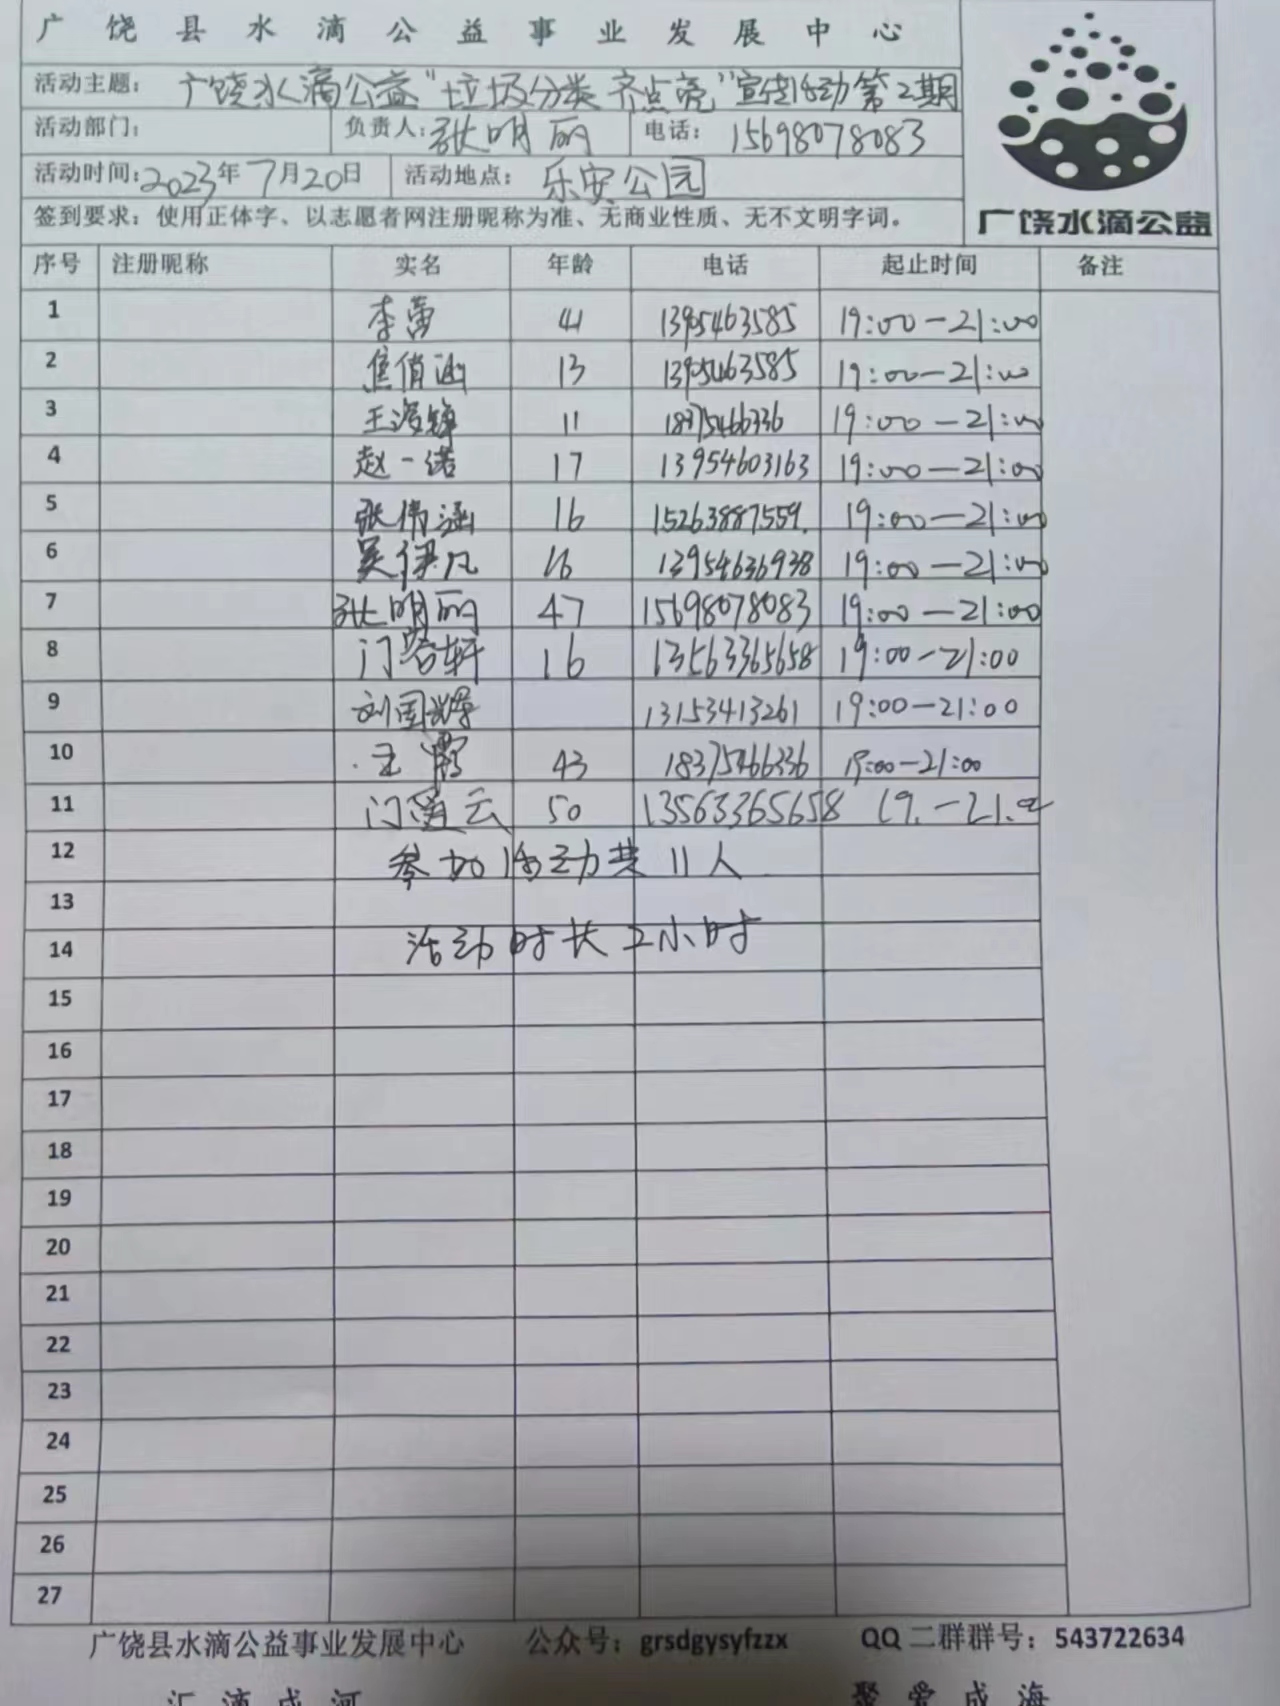 广饶县水滴公益事业发展中心
活动主题：广饶水滴公益"垃圾分类 齐点亮"宣传活动第2期
活动部门： 负责人：张明丽 电话：15698078083
活动时间：2023年7月20日 活动地点：乐安公园
签到要求：使用正体字、以志愿者网注册昵称为准、无商业性质、无不文明字词。
广饶水滴公益
序号 注册昵称 实名 年龄 电话 起止时间 备注
1 李蕾 41 13905463585 19:00-21:00
2 焦俏涵 13 13905463585 19:00-21:00
3 王 11 18375466336 19:00-21:00
4 赵一诺 17 13954603163 19:00-21:00
5 张伟涵 16 15263887559. 19:00-21:00
6 吴保凡 16 13954636938 19:00-21:00
7 张明丽 47 15698078083 19:00-21:00
8 门 轩 16 13563365658 19:00-21:00
9 刘国 13153413261 19:00-21:00
10 王霞 43 18375466336 19:00-21:00
11 门 云 50 13563365658 19.-21.
12 参加活动共11人
13
14 活动时长2小时
15
16
17
18
19
20
21
22
23
24
25
26
27
广饶县水滴公益事业发展中心 公众号：grsdgysyfzzx QQ二群群号：543722634
汇滴成河 聚爱成海